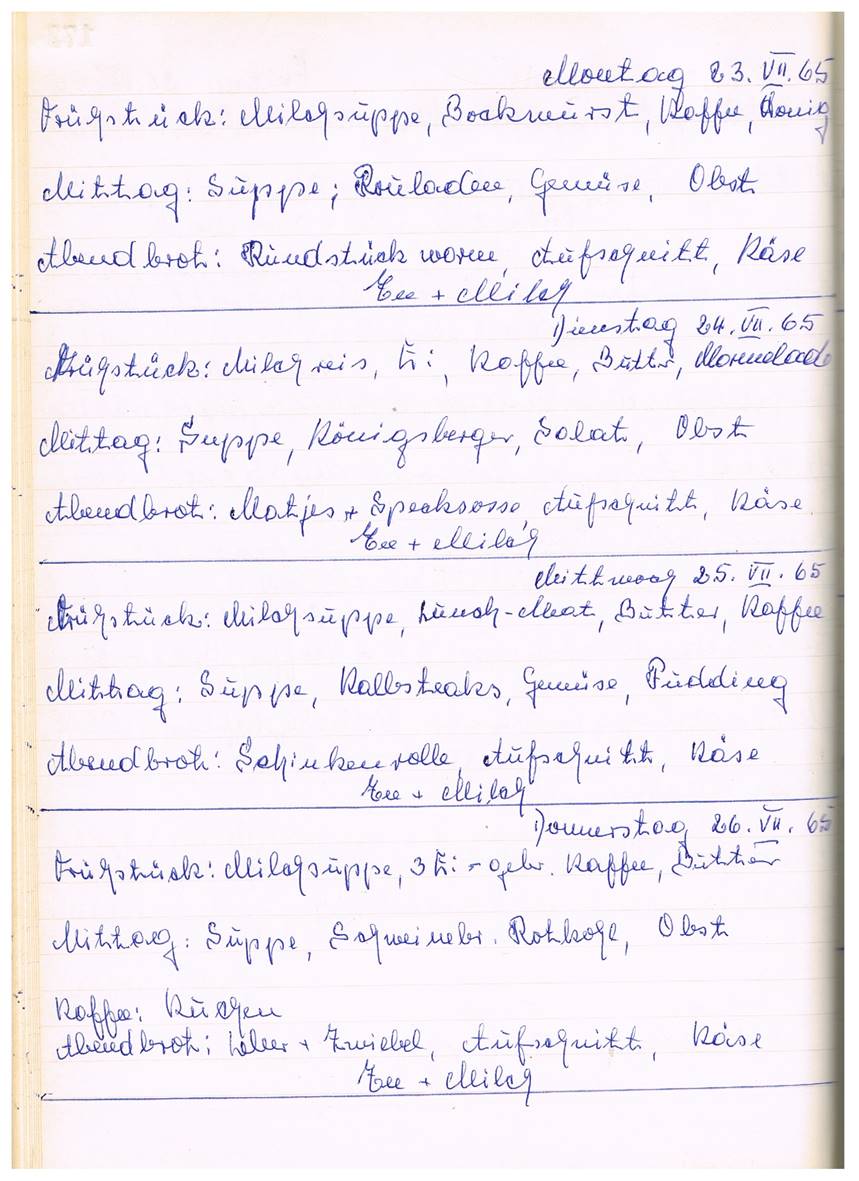 Montag 23. VII. 65
Frühstück: Milchsuppe, Bockwurst, Kaffee, Honig
Mittag: Suppe; Rouladen, Gemüse, Obst
Abendbrot: Rundstück warm, Aufschnitt, Käse
Tee + Milch
Dienstag 24. VII. 65
Frühstück: Milchreis, Ei, Kaffee, Butter, Marmelade
Mittag: Suppe, Königsberger, Salat, Obst
Abendbrot: Matjes + Specksosse, Aufschnitt, Käse
Tee + Milch
Mittwoch 25. VII. 65
Frühstück: Milchsuppe, Lunch-Meat, Butter, Kaffee
Mittag: Suppe, Kalbsteaks, Gemüse, Pudding
Abendbrot: Schinkenrolle, Aufschnitt, Käse
Tee + Milch
Donnerstag 26. VII. 65
Frühstück: Milchsuppe, 3 Ei - gebr. Kaffee, Butter
Mittag: Suppe, Schweinebr. Rotkohl, Obst
Kaffee: Kuchen
Abendbrot: Leber + Zwiebel, Aufschnitt, Käse
Tee + Milch